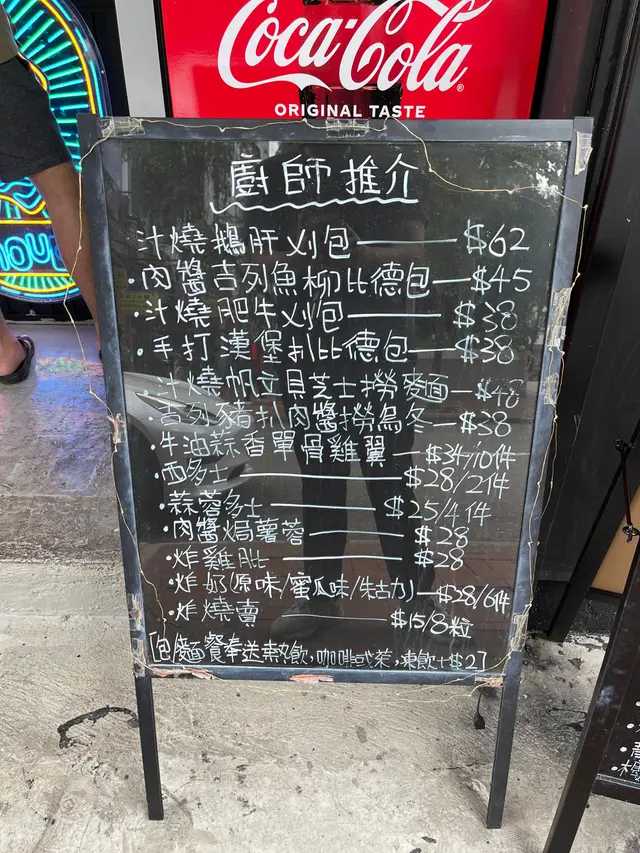 Coca-Cola
ORIGINAL TASTE
廚師推介
汁燒鵝肝刈包 — $62
·肉醬吉列魚柳比德包 — $45
·汁燒肥牛刈包 — $38
·手打漢堡扒比德包 — $38
汁燒帆立貝芝士撈麥面 — $48
·吉列豬扒肉醬撈烏冬 — $38
·牛油蒜香單骨雞翼 — $34/10件
·西多士 — $28/2件
·蒜蓉多士 — $25/4件
·肉醬焗薯蓉 — $28
·炸雞肶 — $28
·炸奶(原味/蜜瓜味/朱古力) — $28/6件
·炸燒賣 — $15/8粒
[包/麵餐奉送熱飲,咖啡或茶,凍飲+$2]